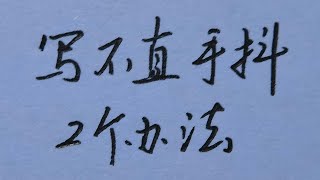 写不直手抖
2个办法